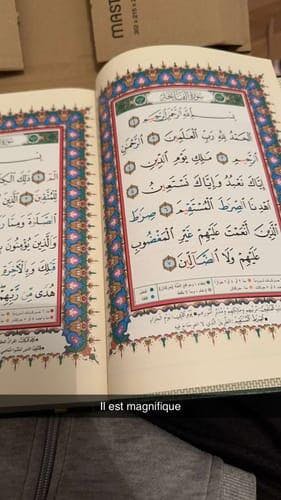 MAST
سُورَةُ الفَاتِحَةِ
بِسْمِ ٱللَّهِ ٱلرَّحْمَٰنِ ٱلرَّحِيمِ ١
ٱلْحَمْدُ لِلَّهِ رَبِّ ٱلْعَٰلَمِينَ ٢ ٱلرَّحْمَٰنِ
ٱلرَّحِيمِ ٣ مَٰلِكِ يَوْمِ ٱلدِّينِ ٤
إِيَّاكَ نَعْبُدُ وَإِيَّاكَ نَسْتَعِينُ ٥
ٱهْدِنَا ٱلصِّرَٰطَ ٱلْمُسْتَقِيمَ ٦ صِرَٰطَ
ٱلَّذِينَ أَنْعَمْتَ عَلَيْهِمْ غَيْرِ ٱلْمَغْضُوبِ
عَلَيْهِمْ وَلَا ٱلضَّآلِّينَ ٧
الٓمٓ ١ ذَٰلِكَ
لِّلْمُتَّقِينَ ٢ ٱلَّذِينَ
ٱلصَّلَوٰةَ وَمِمَّا
وَٱلَّذِينَ يُؤْمِنُونَ
قَبْلِكَ وَبِٱلْءَاخِرَةِ
هُدًى مِّن رَّبِّهِمْ
Il est magnifique